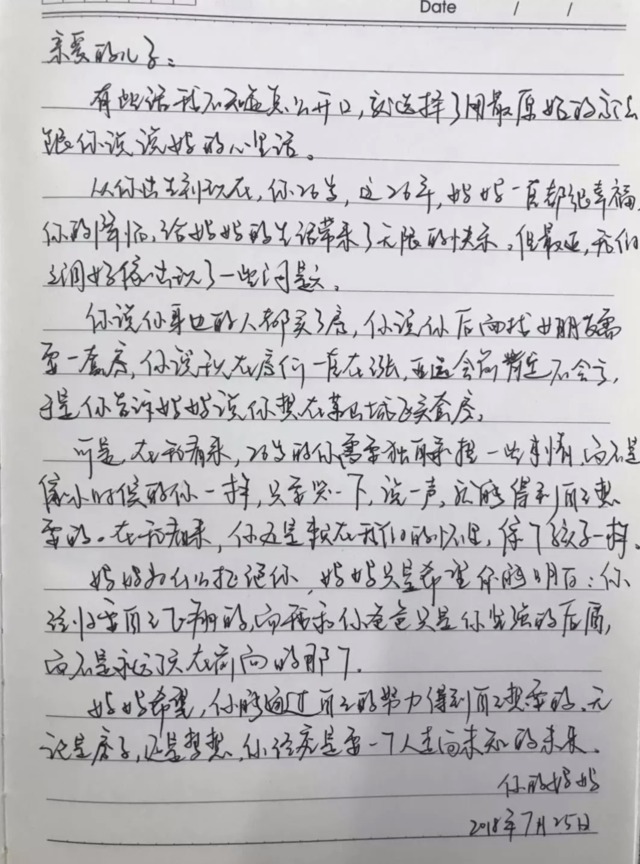 Date / /
亲爱的儿子:
有些话我不知道怎么开口,就选择了用最原始的方式
跟你说说妈妈的心里话。
从你出生到现在,你26岁,这26年,妈妈一直都很幸福,
你的降临,给妈妈的生活带来了无限的快乐,但最近,我们
之间好像出现了一些问题。
你说你身边的人都买了房,你说你后面找女朋友需
要一套房,你说现在房价一直在涨,亚运会前肯定不会亏,
于是你告诉妈妈说你想在买套房,
可是,在我看来,26岁的你需要独自承担一些事情,而不是
像小时候的你一样,只要哭一下,说一声,就能得到自己想
要的。在我看来,你还是躲在我们的怀里,像个孩子一样。
妈妈为什么拒绝你,妈妈只是希望你能明白:你
终归要自己飞翔的,而我和你爸爸只是你坚强的后盾,
而不是永远顶在前面的那个.
妈妈希望,你能通过自己的努力得到自己想要的、无
论是房子,还是梦想,你终究是要一个人走向未知的未来.
你的妈妈
2018年7月25日